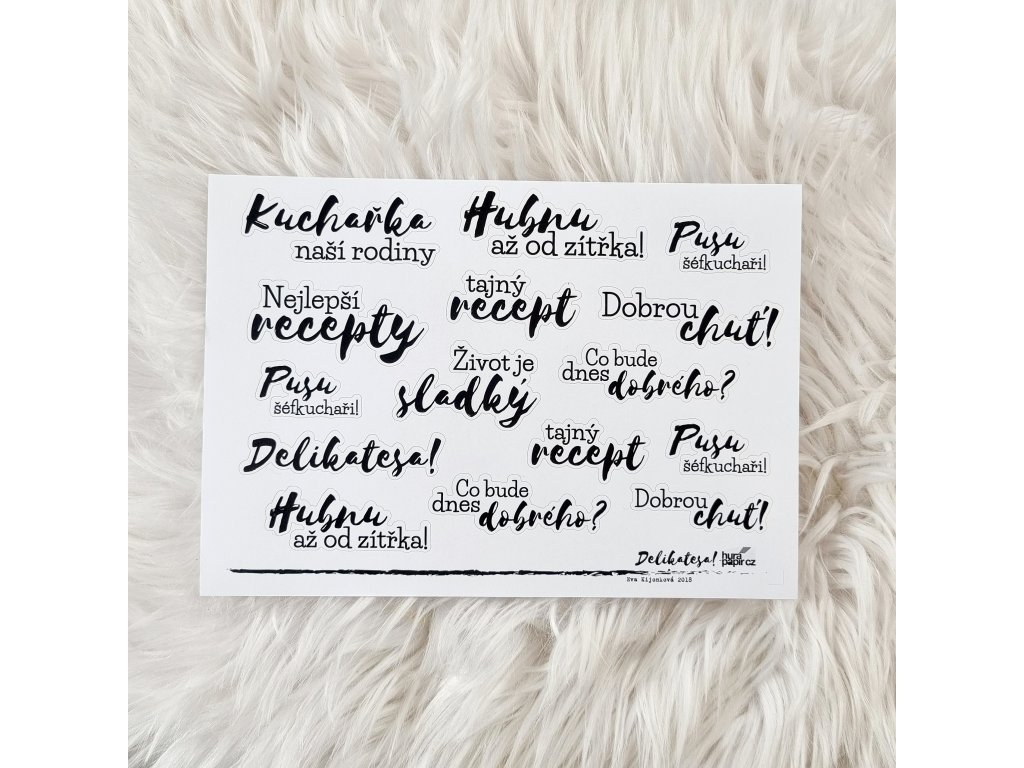 Kuchařka
naší rodiny
Hubnu
až od zítřka!
Pusu
šéfkuchaři!
Nejlepší
recepty
tajný
recept
Dobrou
chuť!
Pusu
šéfkuchaři!
Život je
sladký
Co bude
dnes dobrého?
Delikatesa!
tajný
recept
Pusu
šéfkuchaři!
Hubnu
až od zítřka!
Co bude
dnes dobrého?
Dobrou
chuť!
Delikatesa! hura
papir.cz
Eva Kijonková 2018